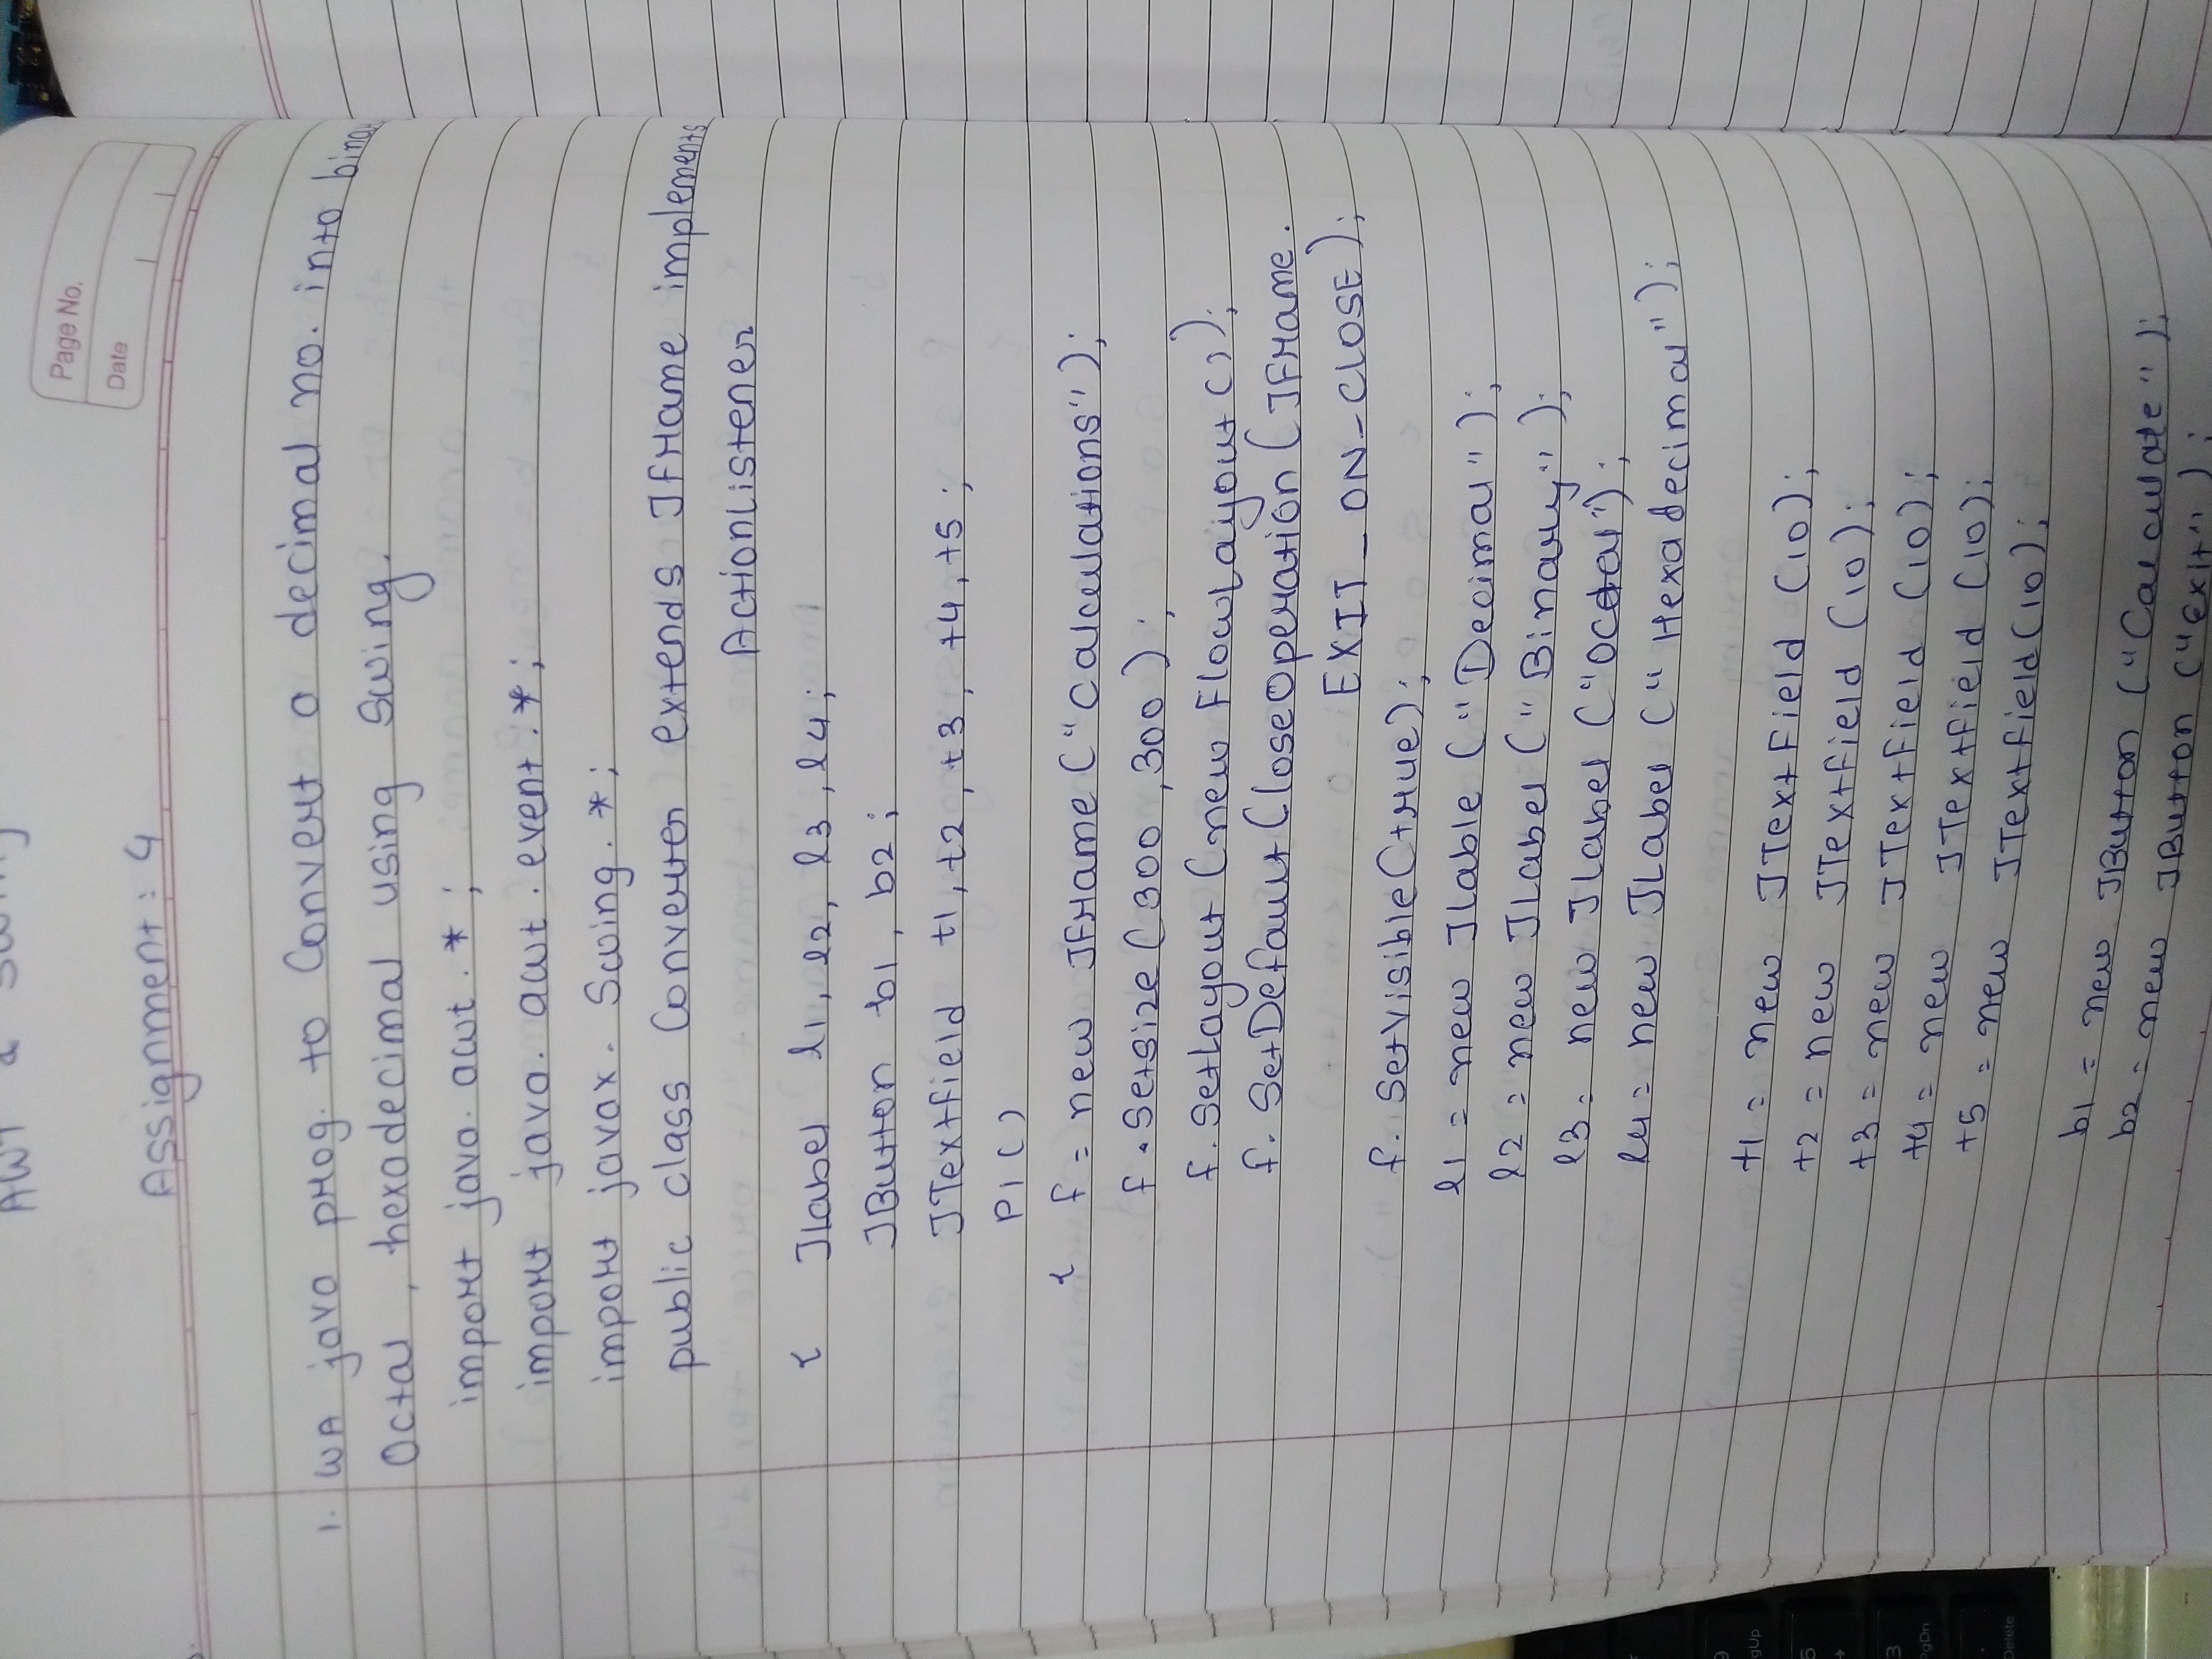 AWT & Swing
Page No.
Date
Assignment: 4
1. WA java prog. to Convert a decimal no. into binar
Octal , hexadecimal using Swing.
import java. awt . * ;
import java. awt . event . * ;
import javax. Swing . * ;
public class Converter extends JFrame implements
ActionListener
{ JLabel l1, l2, l3, l4;
JButton b1, b2;
JTextfield t1, t2, t3, t4, t5;
P1()
{ f = new JFrame ("Calculations");
f. Setsize (300 ,300 );
f. SetLayout (new FlowLayout());
f. SetDefaultCloseOperation (JFrame.
EXIT_ON_CLOSE);
f. SetVisible(true);
l1 = new JLable ("Decimal");
l2 = new JLabel ("Binary");
l3 = new JLabel ("Octal");
l4 = new JLabel ("Hexadecimal");
t1 = new JTextField (10);
t2 = new JTextfield (10);
t3 = new JTextfield (10);
t4 = new JTextfield (10);
t5 = new JTextfield(10);
b1 = new JButton ("Calculate");
b2 = new JButton ("Exit");
9
gUp
6
3
PgDn
.
Delete